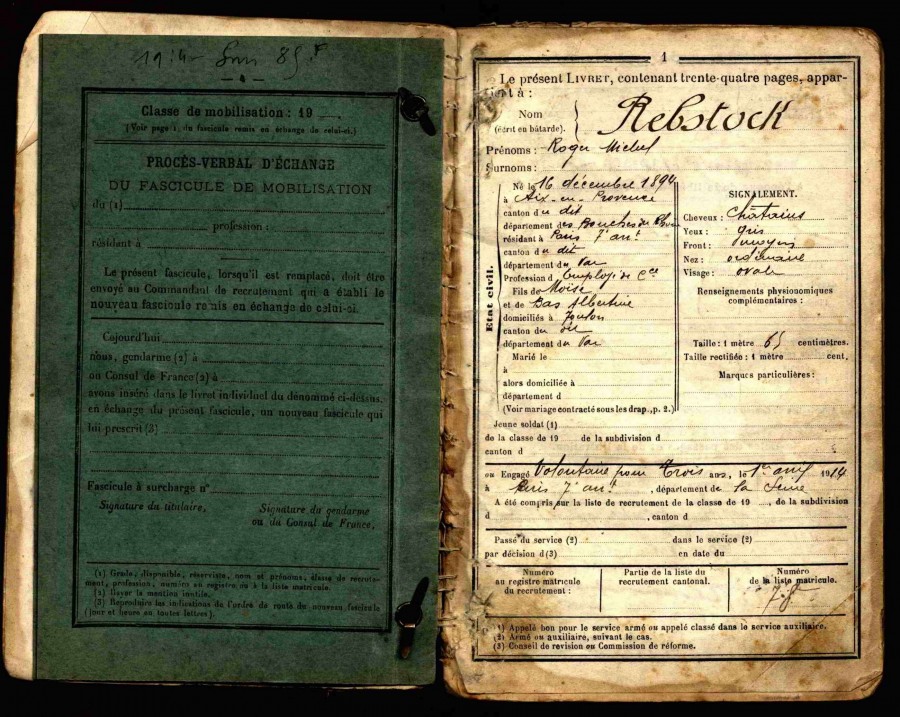 Classe de mobilisation : 19
(Voir page 1, du fascicule remis en échange de celui-ci.)
PROCÈS-VERBAL D'ÉCHANGE
DU FASCICULE DE MOBILISATION
du (1)
profession :
résidant à
Le présent fascicule, lorsqu'il est remplacé, doit être
envoyé au Commandant de recrutement qui a établi le
nouveau fascicule remis en échange de celui-ci.
Cejourd'hui
nous, gendarme (2) à
ou Consul de France (2) à
avons inséré dans le livret individuel du dénommé ci-dessus,
en échange du présent fascicule, un nouveau fascicule qui
lui prescrit (3)
Fascicule à surcharge n°
Signature du titulaire,
Signature du gendarme
ou du Consul de France,
(1) Grade, disponible, réserviste, nom et prénoms, classe de recrute-
ment, profession, numéro au registre ou à la liste matricule.
(2) Rayer la mention inutile.
(3) Reproduire les indications de l'ordre de route du nouveau fascicule
(jour et heure en toutes lettres).
1
Le présent LIVRET, contenant trente-quatre pages, appar-
tient à :
Nom
(écrit en bâtarde).
Rebstock
Prénoms : Roger Michel
Surnoms :
Etat civil.
Né le 16 décembre 1894
à Aix-en-Provence
canton du dit
département des Bouches du Rhône
résidant à Paris 7e arrt
canton du dit
département du Var
Profession d'Employé de Cce
Fils de Moïse
et de Bas Albertine
domiciliés à Toulon
canton du dit
département du Var
Marié le
à
alors domiciliée à
département d
(Voir mariage contracté sous les drap., p. 2.)
SIGNALEMENT.
Cheveux : Châtains
Yeux : gris
Front : moyen
Nez : ordinaire
Visage : ovale
Renseignements physionomiques
complémentaires :
Taille : 1 mètre 65 centimètres.
Taille rectifiée : 1 mètre cent.
Marques particulières :
Jeune soldat (1)
de la classe de 19 de la subdivision d
canton d
ou Engagé Volontaire pour trois ans, le 1er avril 1914
à Paris 7e arrt, département de la Seine
A été compris sur la liste de recrutement de la classe de 19 , de la subdivision
d , canton d
Passé du service (2) dans le service (2)
par décision d (3) en date du
Numéro
au registre matricule
du recrutement :
Partie de la liste du
recrutement cantonal.
Numéro
de la liste matricule.
(1) Appelé bon pour le service armé ou appelé classé dans le service auxiliaire.
(2) Armé ou auxiliaire, suivant le cas.
(3) Conseil de revision ou Commission de réforme.